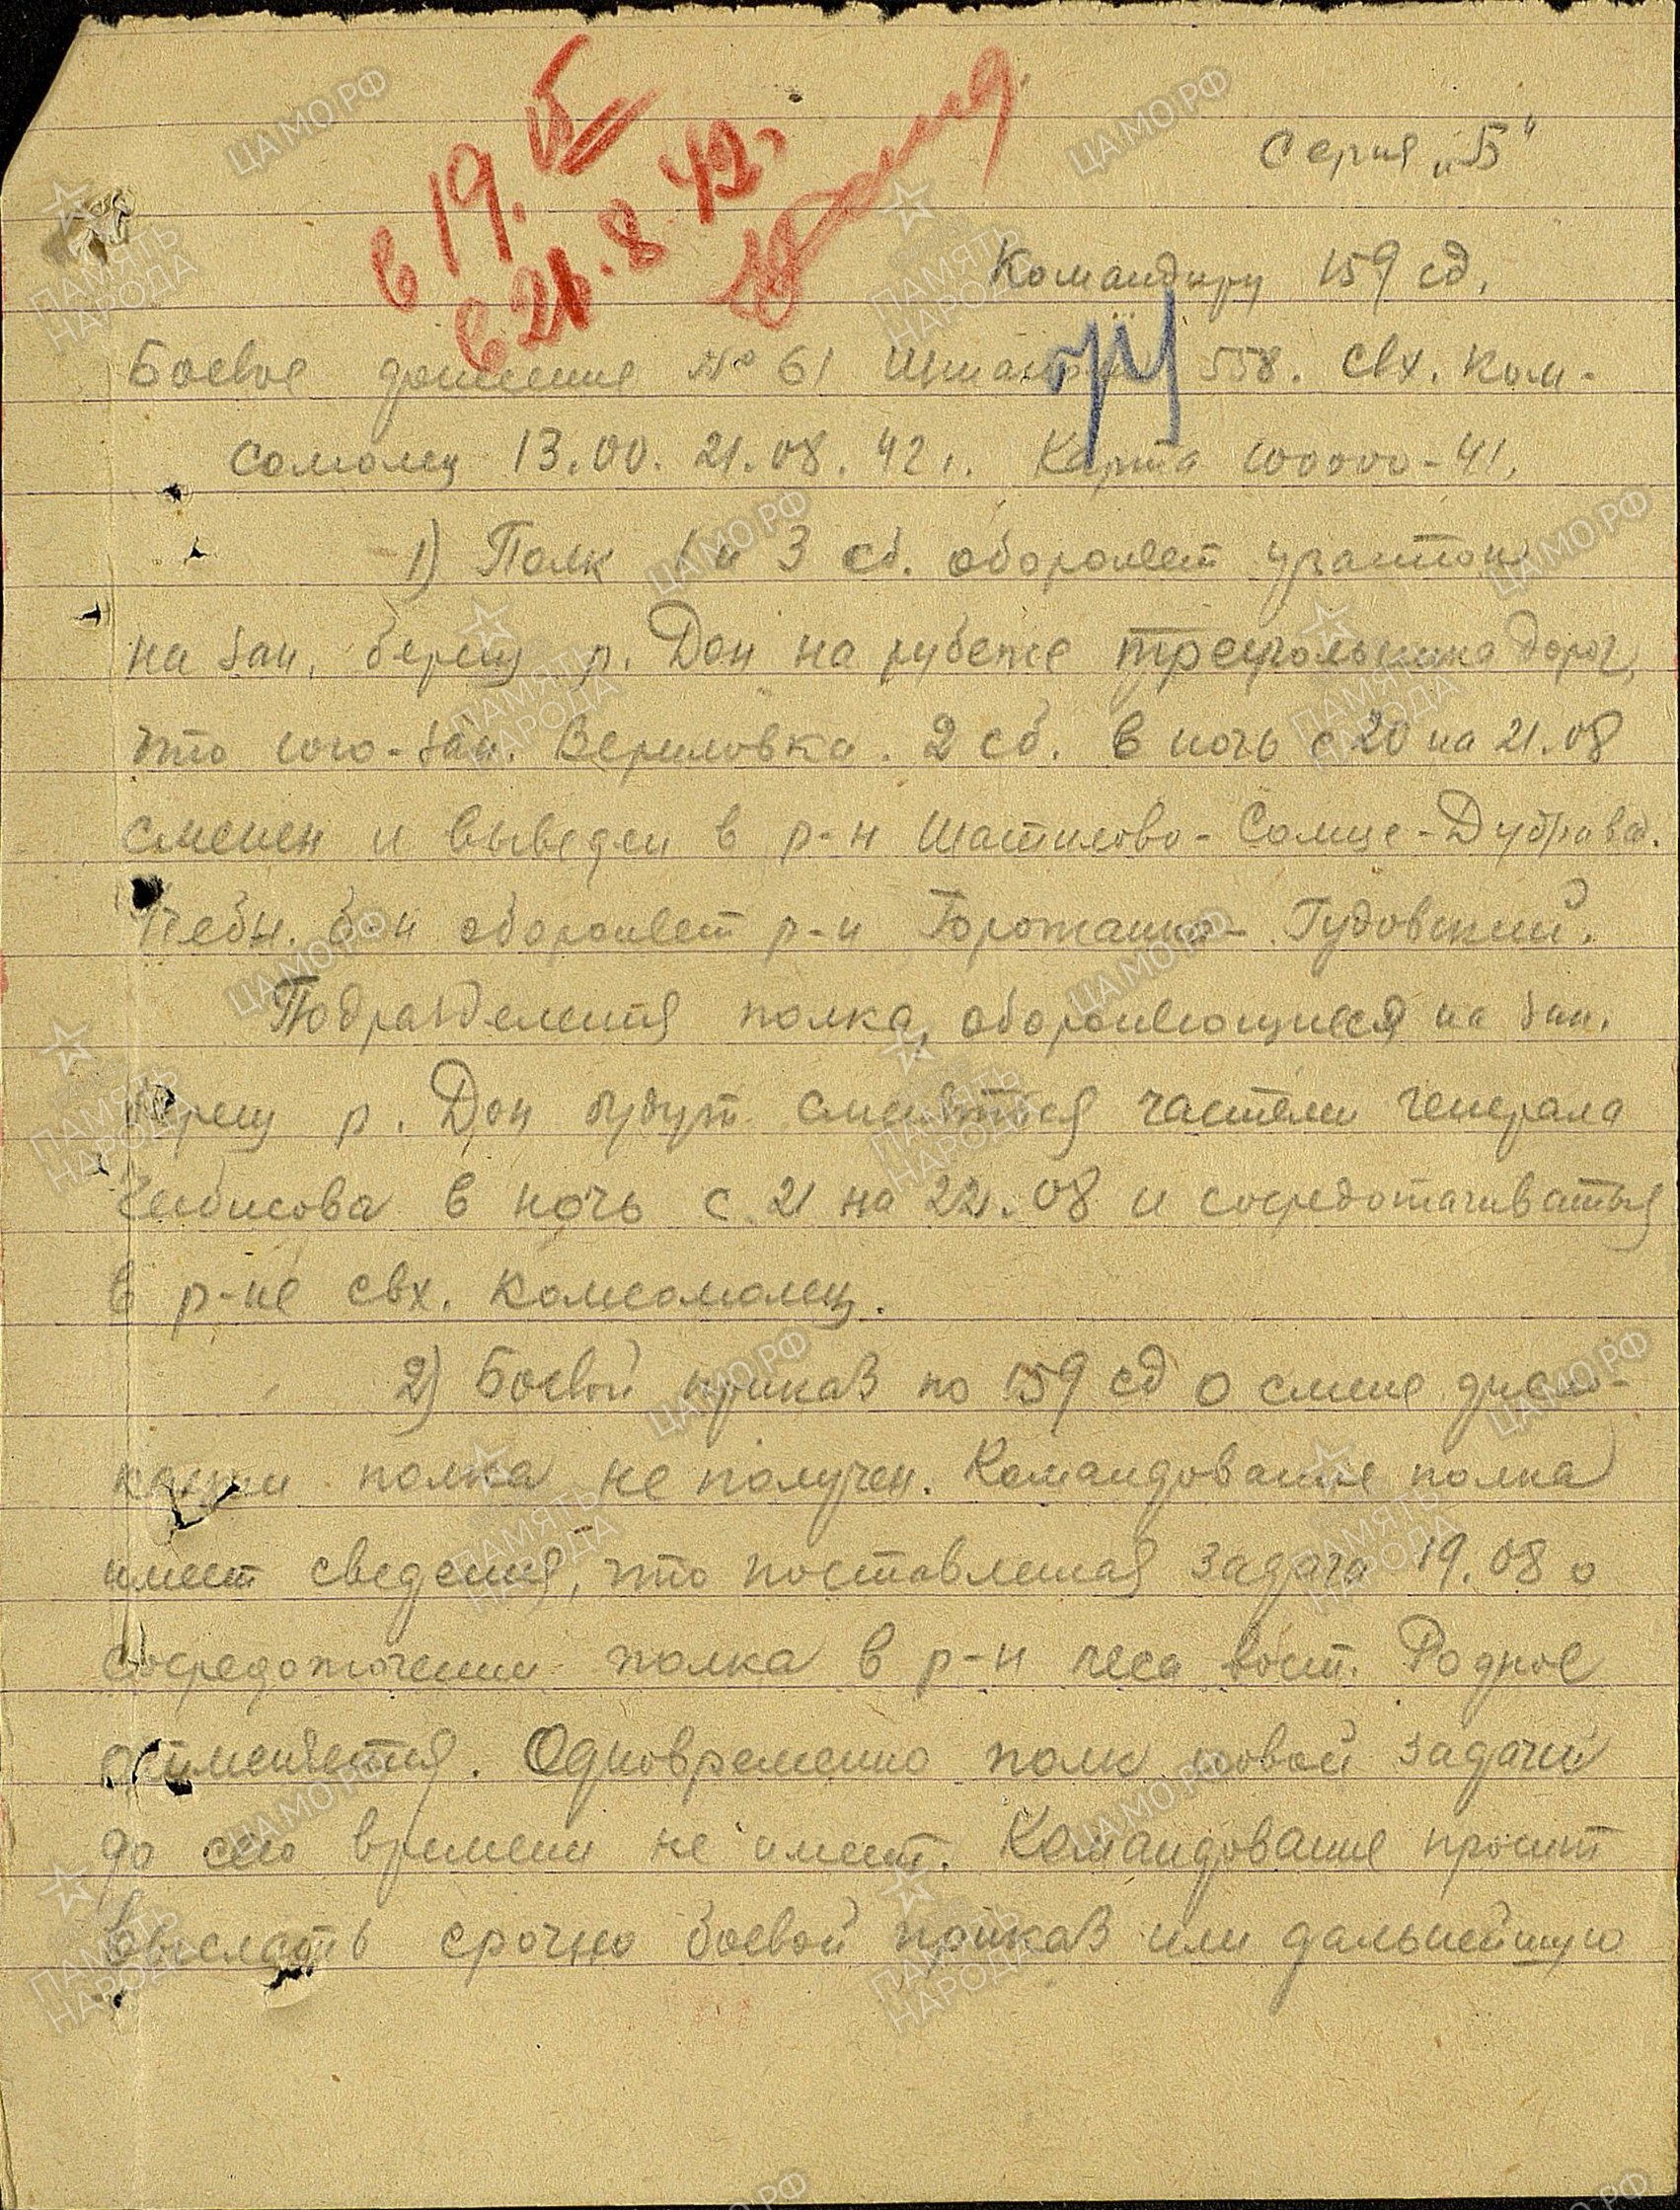 в 19.15
в 21.8.42.
Серия „Б"
Командиру 159 сд.
Боевое донесение № 61 558. Свх. Ком-
сомолец 13.00. 21.08.42 г. Карта 100000-41.
1) Полк 1 и 3 сб. обороняет участок
на зап. берегу р. Дон на рубеже треугольника дорог,
что юго-зап. Вериловка. 2 сб. в ночь с 20 на 21.08
сменен и выведен в р-н Шатилово - Солнце-Дубрава.
Учебн. б-н обороняет р-н Горожанка - Гудовский.
Подразделения полка, обороняющиеся на зап.
берегу р. Дон будут сменяться частями генерала
Чибисова в ночь с 21 на 22.08 и сосредотачиваться
в р-не свх. Комсомолец.
2) Боевой приказ по 159 сд о смене дисло-
кации полка не получен. Командование полка
имеет сведения, что поставленная задача 19.08 о
сосредоточении полка в р-н леса вост. Родное
отменяется. Одновременно полк новой задачи
до сего времени не имеет. Командование просит
выслать срочно боевой приказ или дальнейшую
ЦАМО РФ
ПАМЯТЬ НАРОДА